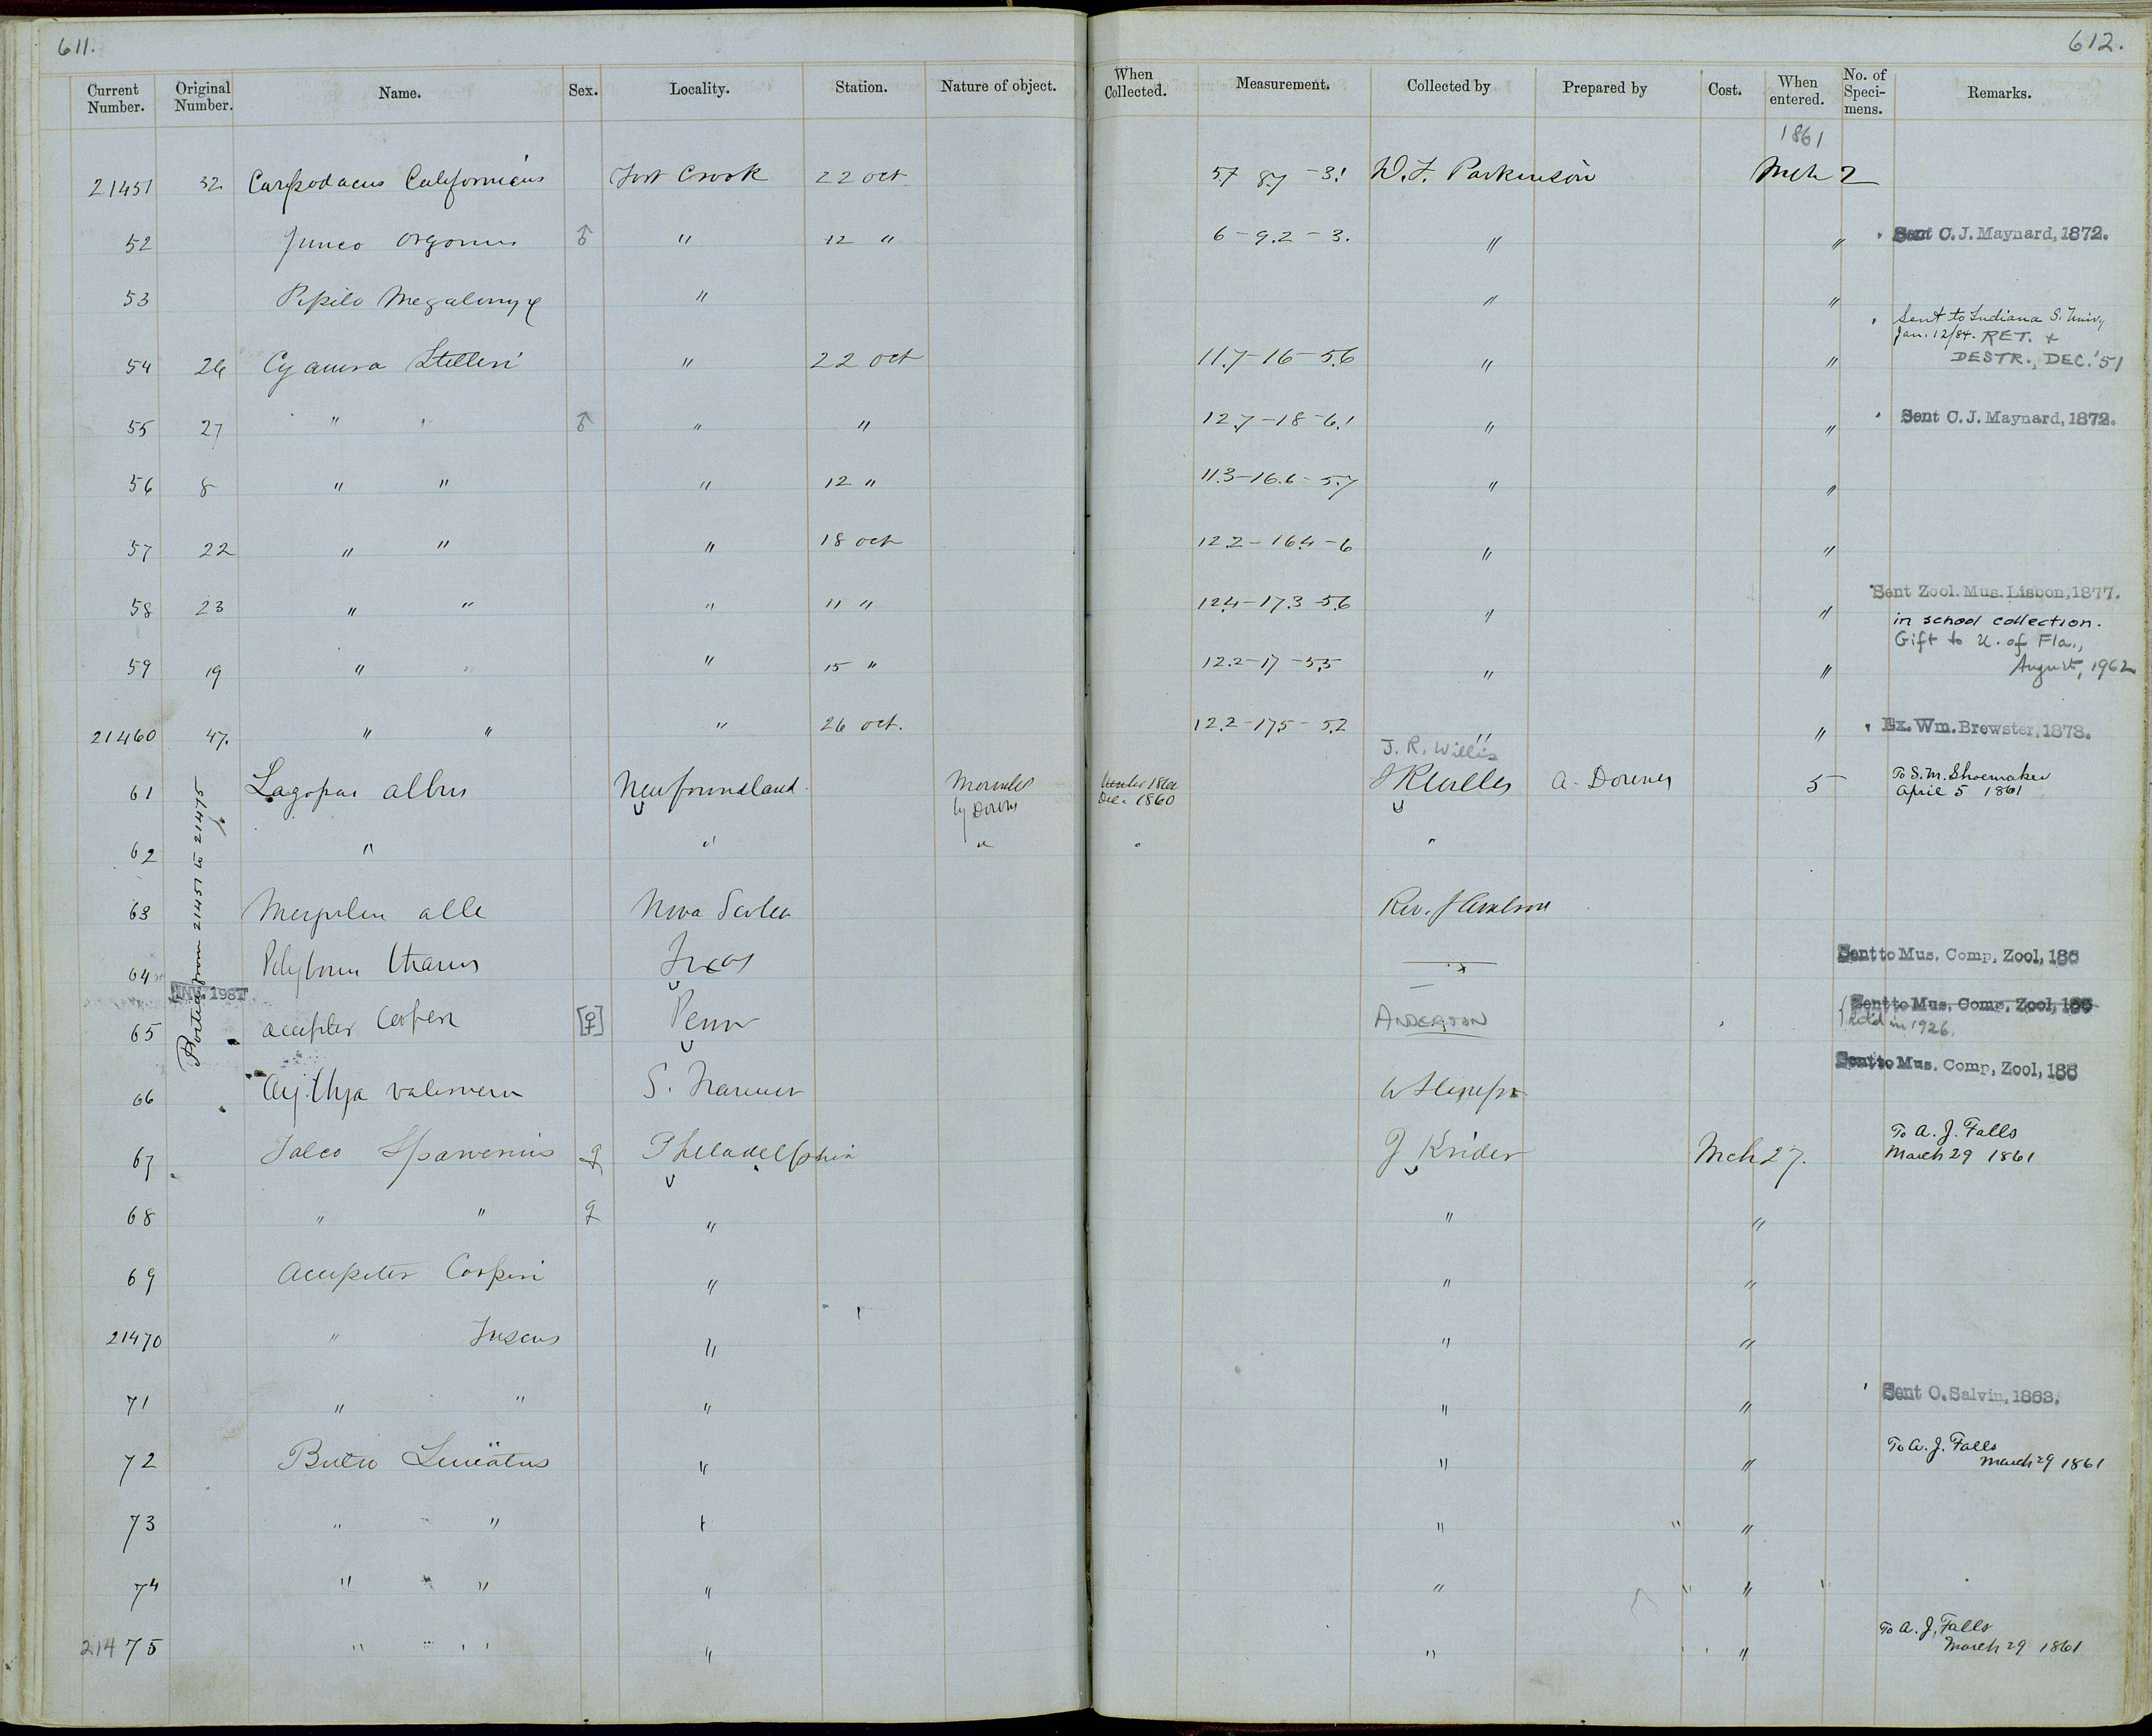 611.
612.
Current Number. Original Number. Name. Sex. Locality. Station. Nature of object. When Collected. Measurement. Collected by Prepared by Cost. When entered. No. of Speci-mens. Remarks.
1861
21451 32 Carpodacus Californicus Fort Crook 22 oct 5.7 8.7 - 3.1 D. F. Parkinson Mch 2
52 Junco Oregonus ♂ " 12 " 6 - 9.2 - 3. " " Sent C. J. Maynard, 1872.
53 Pipilo Megalonyx " " "
Sent to Indiana S. Univ,
Jan. 12/84. RET. +
DESTR., DEC. '51
54 26 Cyanura Stelleri " 22 oct 11.7-16-5.6 " "
55 27 " " ♂ " " 12.7-18-6.1 " " Sent C. J. Maynard, 1872.
56 8 " " " 12 " 11.3-16.6-5.7 " "
57 22 " " " 18 oct 12.2-16.4-6 " "
58 23 " " " 11 " 12.4-17.3-5.6 " " Sent Zool. Mus. Lisbon, 1877.
in school collection.
Gift to U. of Fla.,
August, 1962
59 19 " " " 15 " 12.2-17-5.5 " "
21460 47. " " " 26 oct. 12.2-17.5-5.2 " " Ex. Wm. Brewster, 1878.
J. R. Willis
61 Lagopus albus Newfoundland Mounted by Downs Dec. 1860 J R Willis A. Downes 5 To S. M. Shoemaker
April 5 1861
62 " " " " "
63 Mergulus alle Nova Scotia Rev.
64 Polyborus tharus Texas — Sent to Mus. Comp. Zool, 186
INV. 1987
65 accipiter Cooperi [♀] Penn ANDERSON Sent to Mus. Comp. Zool, 186
Rec'd in 1926.
66 Aythya S. W Stimpson Sent to Mus. Comp. Zool, 186
67 Falco Sparverius ♀ Philadelphia J Krider Mch 27. To A. J. Falls
March 29 1861
68 " " ♀ " " "
69 Accipiter Cooperi " " "
21470 " Fuscus " " "
71 " " " " " Sent O. Salvin, 1868.
72 Buteo Lineatus " " " To A. J. Falls
March 29 1861
73 " " " " "
74 " " " " "
21475 " " " " " To A. J. Falls
March 29 1861
Posted from 21451 to 21475